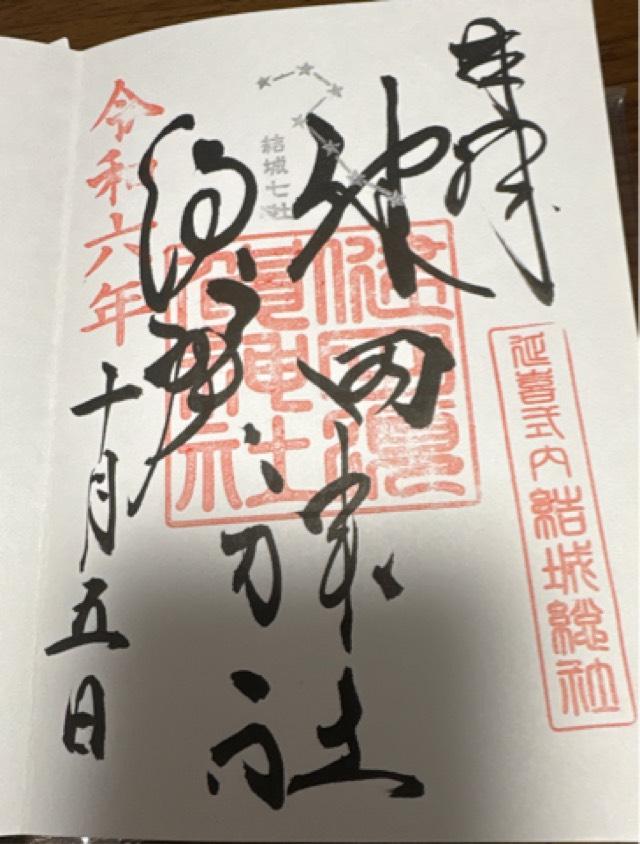 奉拝
延喜式内結城総社
健田神社
結城七社
須賀神社
令和六年
十月五日